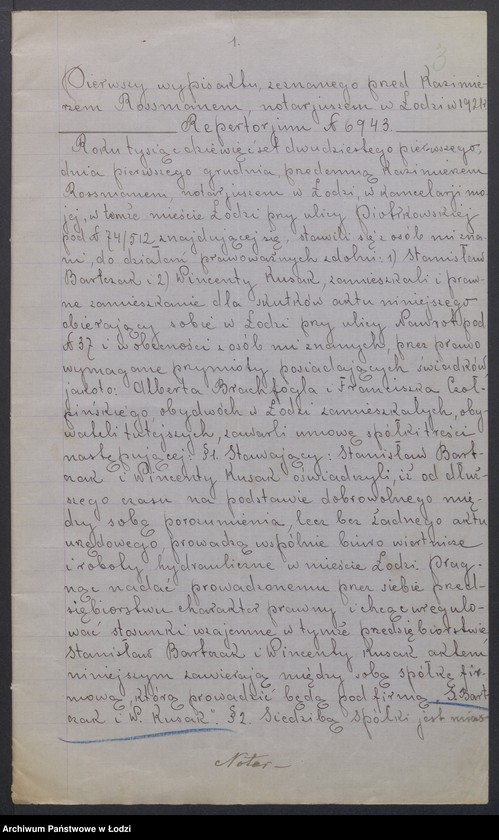 1.
3
Pierwszy wypis aktu, zeznanego przed Kazimie-
rzem Rossmanem, notarjuszem w Łodzi w 1921 r.
Repertorjum № 6943.
Roku tysiąc dziewięćset dwudziestego pierwszego,
dnia pierwszego grudnia, przedemną Kazimierzem
Rossmanem, notarjuszem w Łodzi, w kancelarji mo-
jej, w temże mieście Łodzi przy ulicy Piotrkowskiej
pod № 74/512 znajdującej się, stawili się z osób mi zna-
ni, do działań prawoważnych zdolni: 1) Stanisław
Bartczak i 2) Wincenty Kusak, zamieszkali i praw-
ne zamieszkanie dla skutków aktu niniejszego
obierający sobie w Łodzi przy ulicy Nawrot pod
№ 37 i w obecności z osób mi znanych, przez prawo
wymagane przymioty posiadających świadków
jakoto: Alberta Brachfogla i Franciszka
obydwóch w Łodzi zamieszkałych, oby-
wateli tutejszych, zawarli umowę spółki treści
następującej: §1. Stawający: Stanisław Bart-
czak i Wincenty Kusak oświadczyli, iż od dłuż-
szego czasu na podstawie dobrowolnego mię-
dzy sobą porozumienia, lecz bez żadnego aktu
urzędowego, prowadzą wspólnie biuro wiertnicze
i roboty hydrauliczne w mieście Łodzi. Prag-
nąc nadać prowadzonemu przez siebie przed-
siębiorstwu charakter prawny i chcąc uregulo-
wać stosunki wzajemne w tymże przedsiębiorstwie
Stanisław Bartczak i Wincenty Kusak aktem
niniejszym zawierają między sobą spółkę fir-
mową, którą prowadzić będą pod firmą „S. Bart-
czak i W. Kusak". §2. Siedzibą spółki jest mias-
Notar-
Archiwum Państwowe w Łodzi